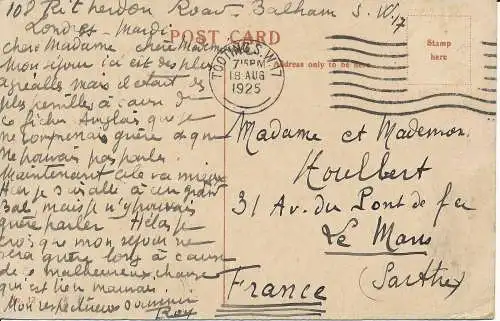 108 Ritherdon Road - Balham S. W. 17
Londres - Mardi
chère Madame, chère Mademoi
Mon séjour ici est des plus
agréables mais il était des
plus pénibles à cause de
ce fichu Anglais que je
ne comprenais guère et que
ne pouvais pas parler.
Maintenant cela va mieux
Hier je suis allé à un grand
Bal mais je n'y pouvais
guère parler Hélas je
crois que mon séjour ne
sera guère long à cause
de ce malheureux change
qui est bien mauvais.
Mon respectueux souvenir
POST CARD
Address only to be here.
Stamp
here
TOOTING, S.W.17
7.15 PM
18 AUG
1925
Madame et Mademoi
Houlbert
31 Av. du Pont de fer
Le Mans
(Sarthe)
France